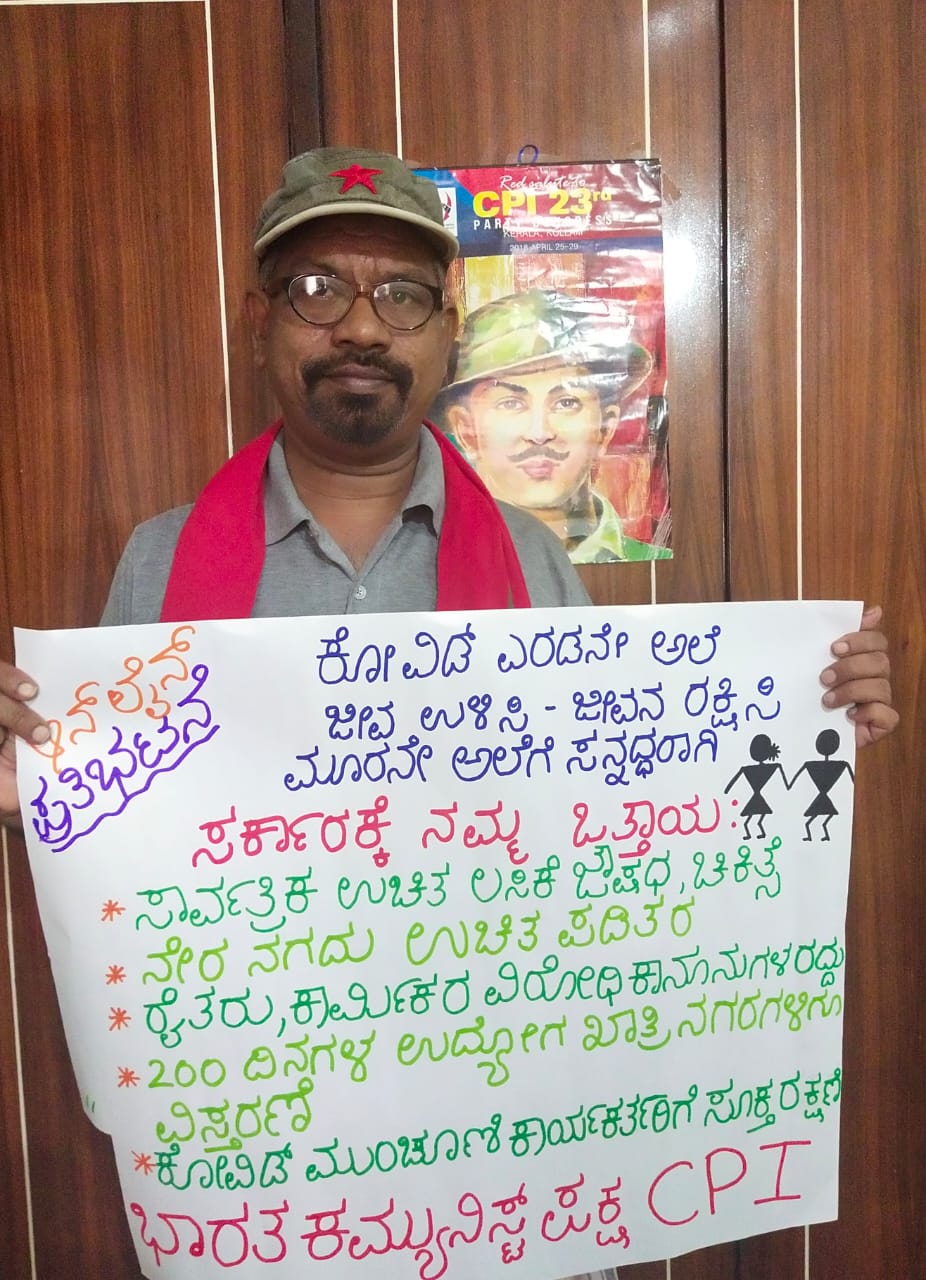 Red salute to
CPI 23rd
PARTY CONGRESS
KERALA, KOLLAM
2018 APRIL 25-29
ಆನ್ ಲೈನ್
ಪ್ರತಿಭಟನೆ
ಕೋವಿಡ್ ಎರಡನೇ ಅಲೆ
ಜೀವ ಉಳಿಸಿ - ಜೀವನ ರಕ್ಷಿಸಿ
ಮೂರನೇ ಅಲೆಗೆ ಸನ್ನದ್ಧರಾಗಿ
ಸರ್ಕಾರಕ್ಕೆ ನಮ್ಮ ಒತ್ತಾಯ:
* ಸಾರ್ವತ್ರಿಕ ಉಚಿತ ಲಸಿಕೆ ಔಷಧ, ಚಿಕಿತ್ಸೆ
* ನೇರ ನಗದು ಉಚಿತ ಪಡಿತರ
* ರೈತರು, ಕಾರ್ಮಿಕರ ವಿರೋಧಿ ಕಾನೂನುಗಳ ರದ್ದು
* 200 ದಿನಗಳ ಉದ್ಯೋಗ ಖಾತ್ರಿ ನಗರಗಳಿಗೂ
ವಿಸ್ತರಣೆ
* ಕೋವಿಡ್ ಮುಂಚೂಣಿ ಕಾರ್ಯಕರ್ತರಿಗೆ ಸೂಕ್ತ ರಕ್ಷಣೆ
ಭಾರತ ಕಮ್ಯುನಿಸ್ಟ್ ಪಕ್ಷ CPI